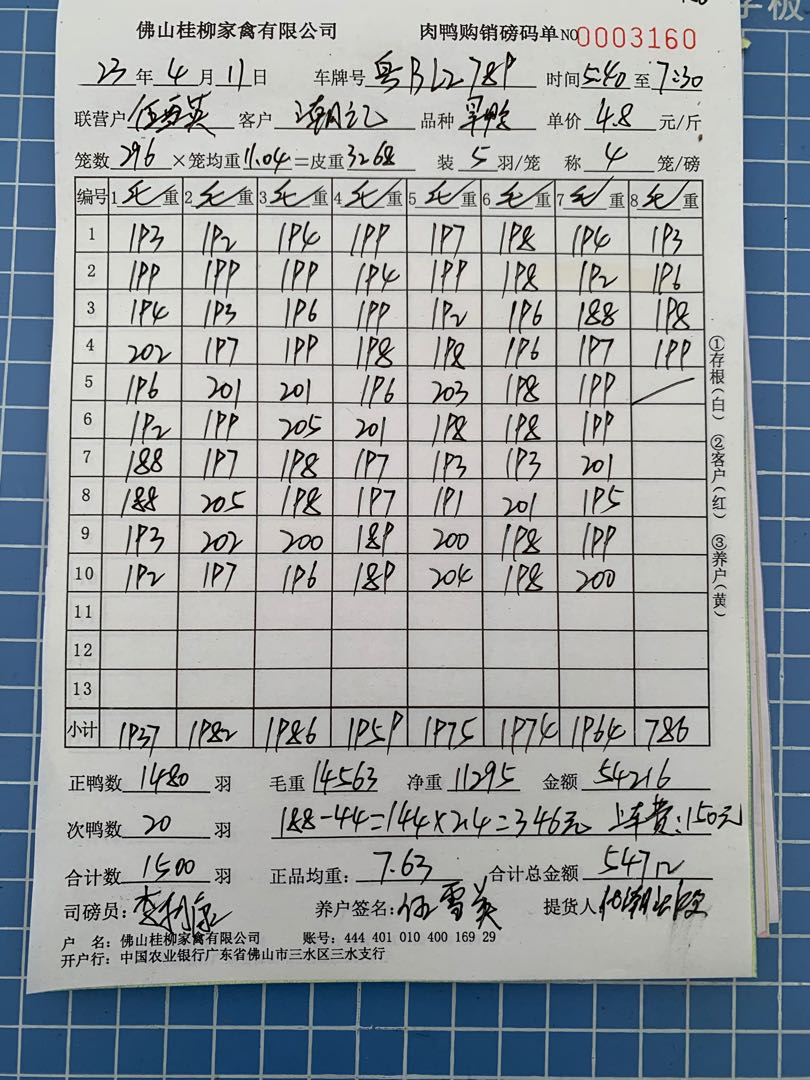 佛山桂柳家禽有限公司 肉鸭购销磅码单 NO 0003160
23 年 4 月 11 日 车牌号 粤BLZ789 时间 5:40 至 7:30
联营户 伍雪英 客户 潮记 品种 单价 4.8 元/斤
笼数 296 ×笼均重 11.04 =皮重 3268 装 5 羽/笼 称 4 笼/磅
编号 1 毛 重 2 毛 重 3 毛 重 4 毛 重 5 毛 重 6 毛 重 7 毛 重 8 毛 重
1 193 192 194 199 197 198 194 193
2 199 199 199 194 199 198 192 196
3 194 193 196 199 192 196 188 198
4 202 197 199 198 198 196 197 199
5 196 201 201 196 203 198 199
6 192 199 205 201 198 198 199
7 188 197 198 197 193 193 201
8 188 205 198 197 191 201 195
9 193 202 200 189 200 198 199
10 192 197 196 189 204 198 200
11
12
13
小计 1937 1982 1986 1959 1975 1974 1964 786
①存根(白) ②客户(红) ③养户(黄)
正鸭数 1480 羽 毛重 14563 净重 11295 金额 54216
次鸭数 20 羽 188-44=144×2.4=346元 上车费:150元
合计数 1500 羽 正品均重: 7.63 合计总金额 54712
司磅员: 养户签名: 伍雪英 提货人
户 名: 佛山桂柳家禽有限公司 账号: 444 401 010 400 169 29
开户行: 中国农业银行广东省佛山市三水区三水支行